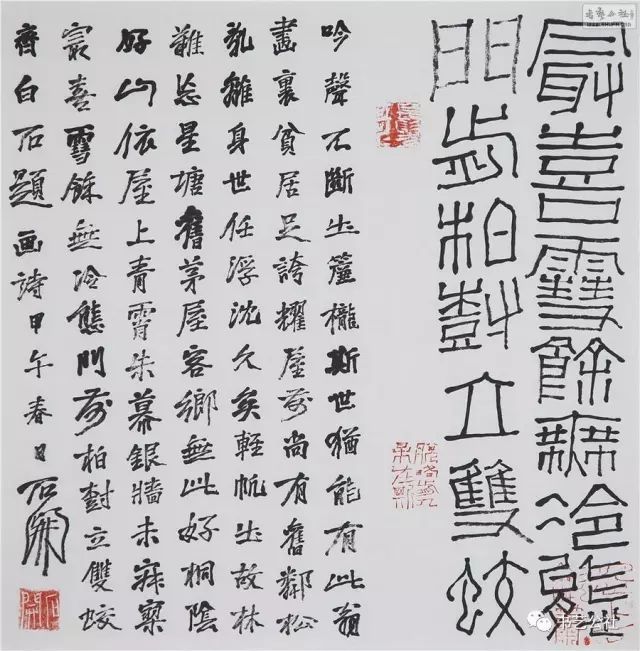 最喜雪餘無冷態
門前柏樹立雙蛟
吟聲不斷出簾櫳斯世猶能有此翁
畫裏貧居足誇耀屋前尚有舊鄰松
亂離身世任浮沈久矣輕帆出故林
難忘星塘舊茅屋客鄉無此好桐陰
好山依屋上青霄朱幕銀牆未寂寥
最喜雪餘無冷態門前柏樹立雙蛟
齊白石題画詩甲午春日石開
石開
书艺公社